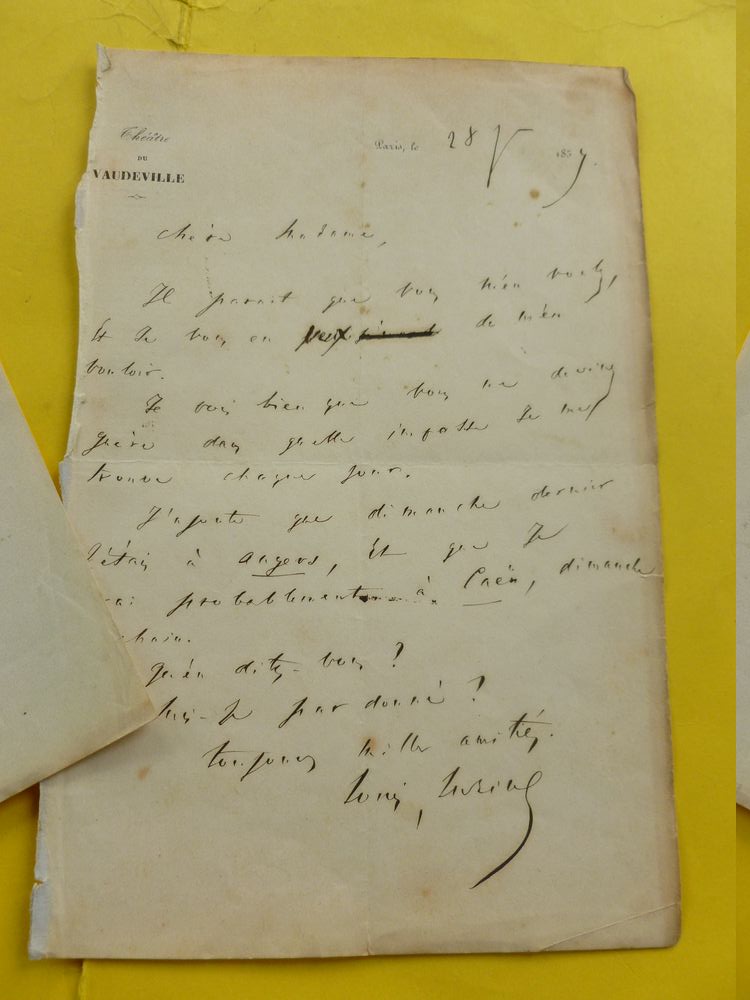 Théâtre
DU
VAUDEVILLE
Paris, le 28 V 1857.
chère Madame,
Il parait que vous m'en voulez,
Et Je vous en veux de m'en
vouloir.
Je vois bien que vous ne devinez
guère dans quelle impasse Je me
trouve chaque jour.
J'ajoute que dimanche dernier
J'étais à Angers, Et que Je
rai probablement à Caën, dimanche
chain.
qu'en dites-vous ?
suis-Je pardonné ?
toujours mille amitiés.
Louis Lurine